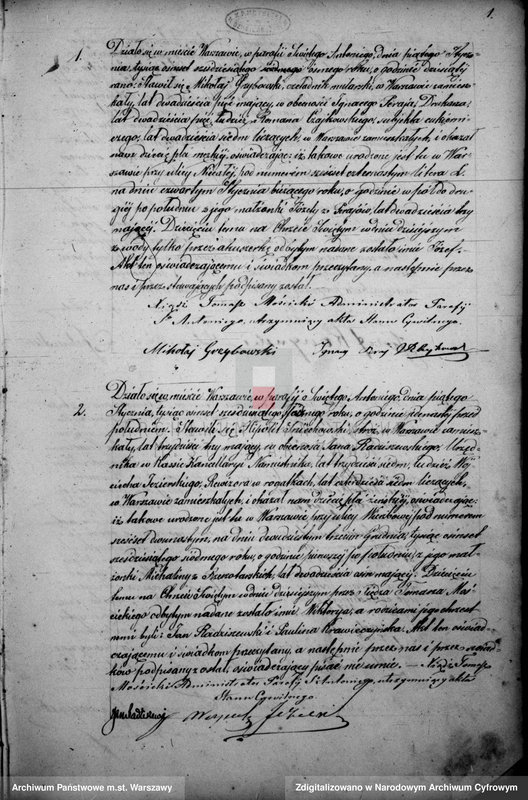 1.
1.
Działo się w mieście Warszawie, w parafii Świętego Antoniego, dnia piątego Stycz-
nia, tysiąc ośmset sześćdziesiątego ósmego roku, o godzinie dziesiątej
rano. Stawił się Mikołaj Grzybowski, czeladnik mularski, w Warszawie zamiesz-
kały, lat dwadzieścia pięć mający, w obecności Ignacego Poraja, Drukarza,
lat dwadzieścia pięć, tudzież Romana Czajkowskiego, subjekta cukierni-
czego, lat dwadzieścia siedm liczących, w Warszawie zamieszkałych, i okazał
nam dziecię płci męzkiej, oświadczając: iż takowe urodzone jest tu w War-
szawie przy ulicy pod numerem sześćset czternastym litera L.
na dniu czwartym Stycznia bieżącego roku, o godzinie w pół do dru-
giej po południu, z jego małżonki Józefy z Porajów, lat dwadzieścia trzy
mającej. Dziecięciu temu na Chrzcie Świętym w dniu dzisiejszym
z wody tylko przez akuszerkę odbytym nadane zostało imię Józef.
Akt ten oświadczającemu i świadkom przeczytany, a następnie przez
nas i przez stawających podpisany został.
Xiądz Tomasz Mościcki Administrator Parafij
Ś. Antoniego, utrzymujący akta Stanu Cywilnego.
Mikołaj Grzybowski Ignacy Poraj
2.
Działo się w mieście Warszawie, w parafij Świętego Antoniego, dnia piątego
Stycznia, tysiąc ośmset sześćdziesiątego ósmego roku, o godzinie jedenastej przed
południem. Stawił się Hipolit stróż, w Warszawie zamiesz-
kały, lat trzydzieści trzy mający, w obecności Jana Radziszewskiego, Urzęd-
nika w Kassie Kancellaryi Namiestnika, lat trzydzieści siedm, tudzież Woj-
ciecha Jezierskiego, w rogatkach, lat czterdzieści siedm liczących,
w Warszawie zamieszkałych, i okazał nam dziecię płci żeńskiej, oświadczając:
iż takowe urodzone jest tu w Warszawie, przy ulicy Wierzbowej pod numerem
sześćset dwunastym, na dniu dwudziestym trzecim Grudnia, tysiąc ośmset
sześćdziesiątego siódmego roku, o godzinie pierwszej po południu, z jego mał-
żonki Michaliny z lat dwadzieścia ośm mającej. Dziecięciu
temu na Chrzcie Świętym w dniu dzisiejszym przez Xiędza Tomasza Moś-
cickiego odbytym nadane zostało imię Wiktorja, a rodzicami jego chrzest-
nemi byli: Jan Radziszewski i Paulina Akt ten oświad-
czającemu i świadkom przeczytany, a następnie przez nas i przez świad-
ków podpisany został, oświadczający pisać nie umie. — Xiądz Tomasz
Mościcki Administrator Parafij Ś. Antoniego, utrzymujący akta
Stanu Cywilnego
Jan Radziszewski Wojciech Jezierski
Archiwum Państwowe m.st. Warszawy
Zdigitalizowano w Narodowym Archiwum Cyfrowym